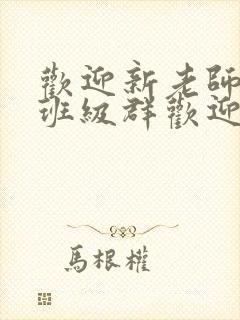 歡迎新老師
班級群歡迎
馬根權